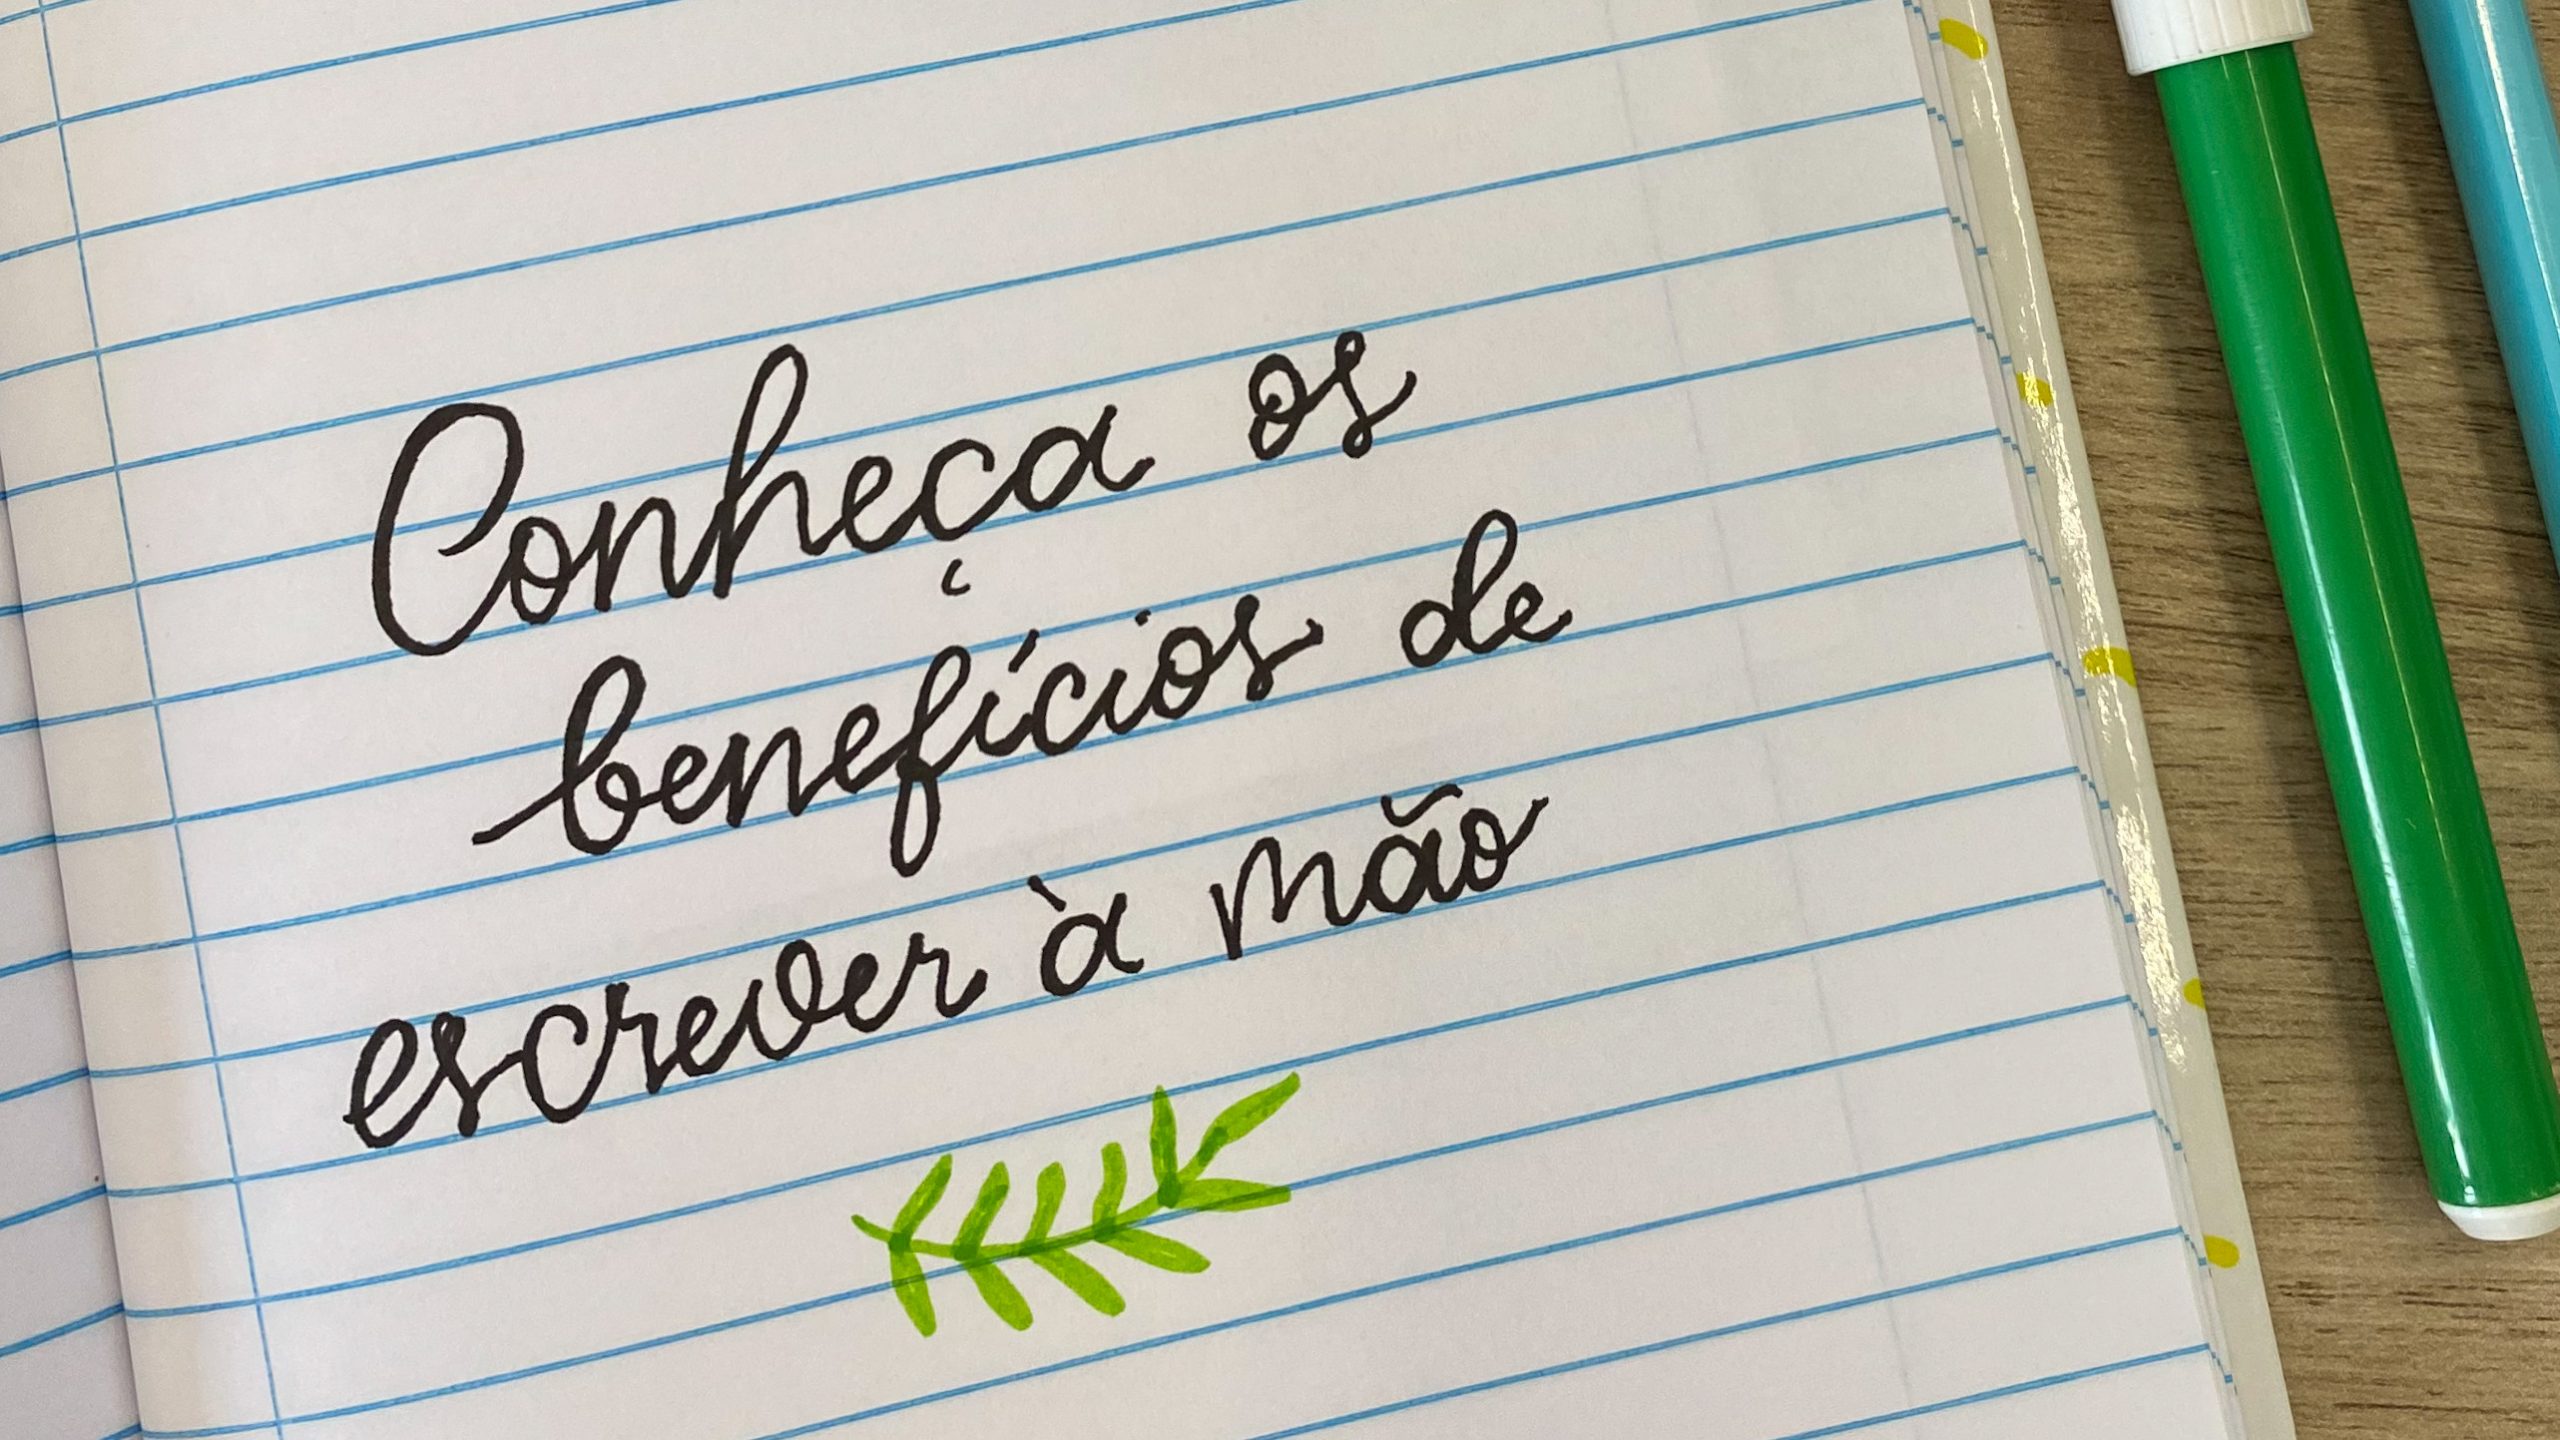 Conheça os
benefícios de
escrever à mão